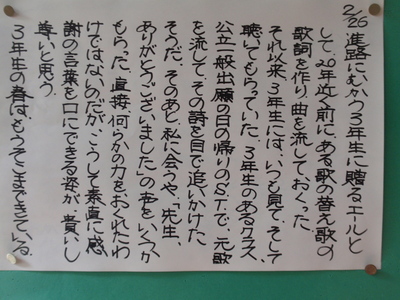 2/26 進路にむかう3年生に贈るエールと
して、20年近く前にある歌の替え歌の
歌詞を作り、曲を流しておくった。
それ以来、3年生には、いつも見て、そして
聴いてもらっていた。3年生のあるクラス、
公立一般出願の日の帰りのS.T.で、元歌
を流して、その詩を目で追いかけた
そうだ。そのあと、私に会うや、「先生、
ありがとうございました」の声をいくつか
もらった。直接、何らかの力をおくれたわ
けではないのだが、こうして素直に感
謝の言葉を口にできる姿が、貴いし
尊いと思う。
3年生の春は、もうそこまできている。